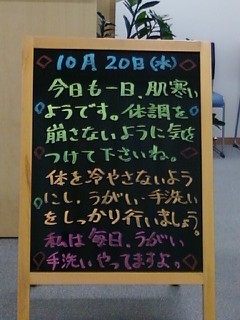 10月20日(水)
今日も一日、肌寒い
ようです。体調を
崩さないように気を
つけて下さいね。
体を冷やさないよう
にし、うがい・手洗い
をしっかり行いましょう。
私は毎日、うがい
手洗いやってますよ。